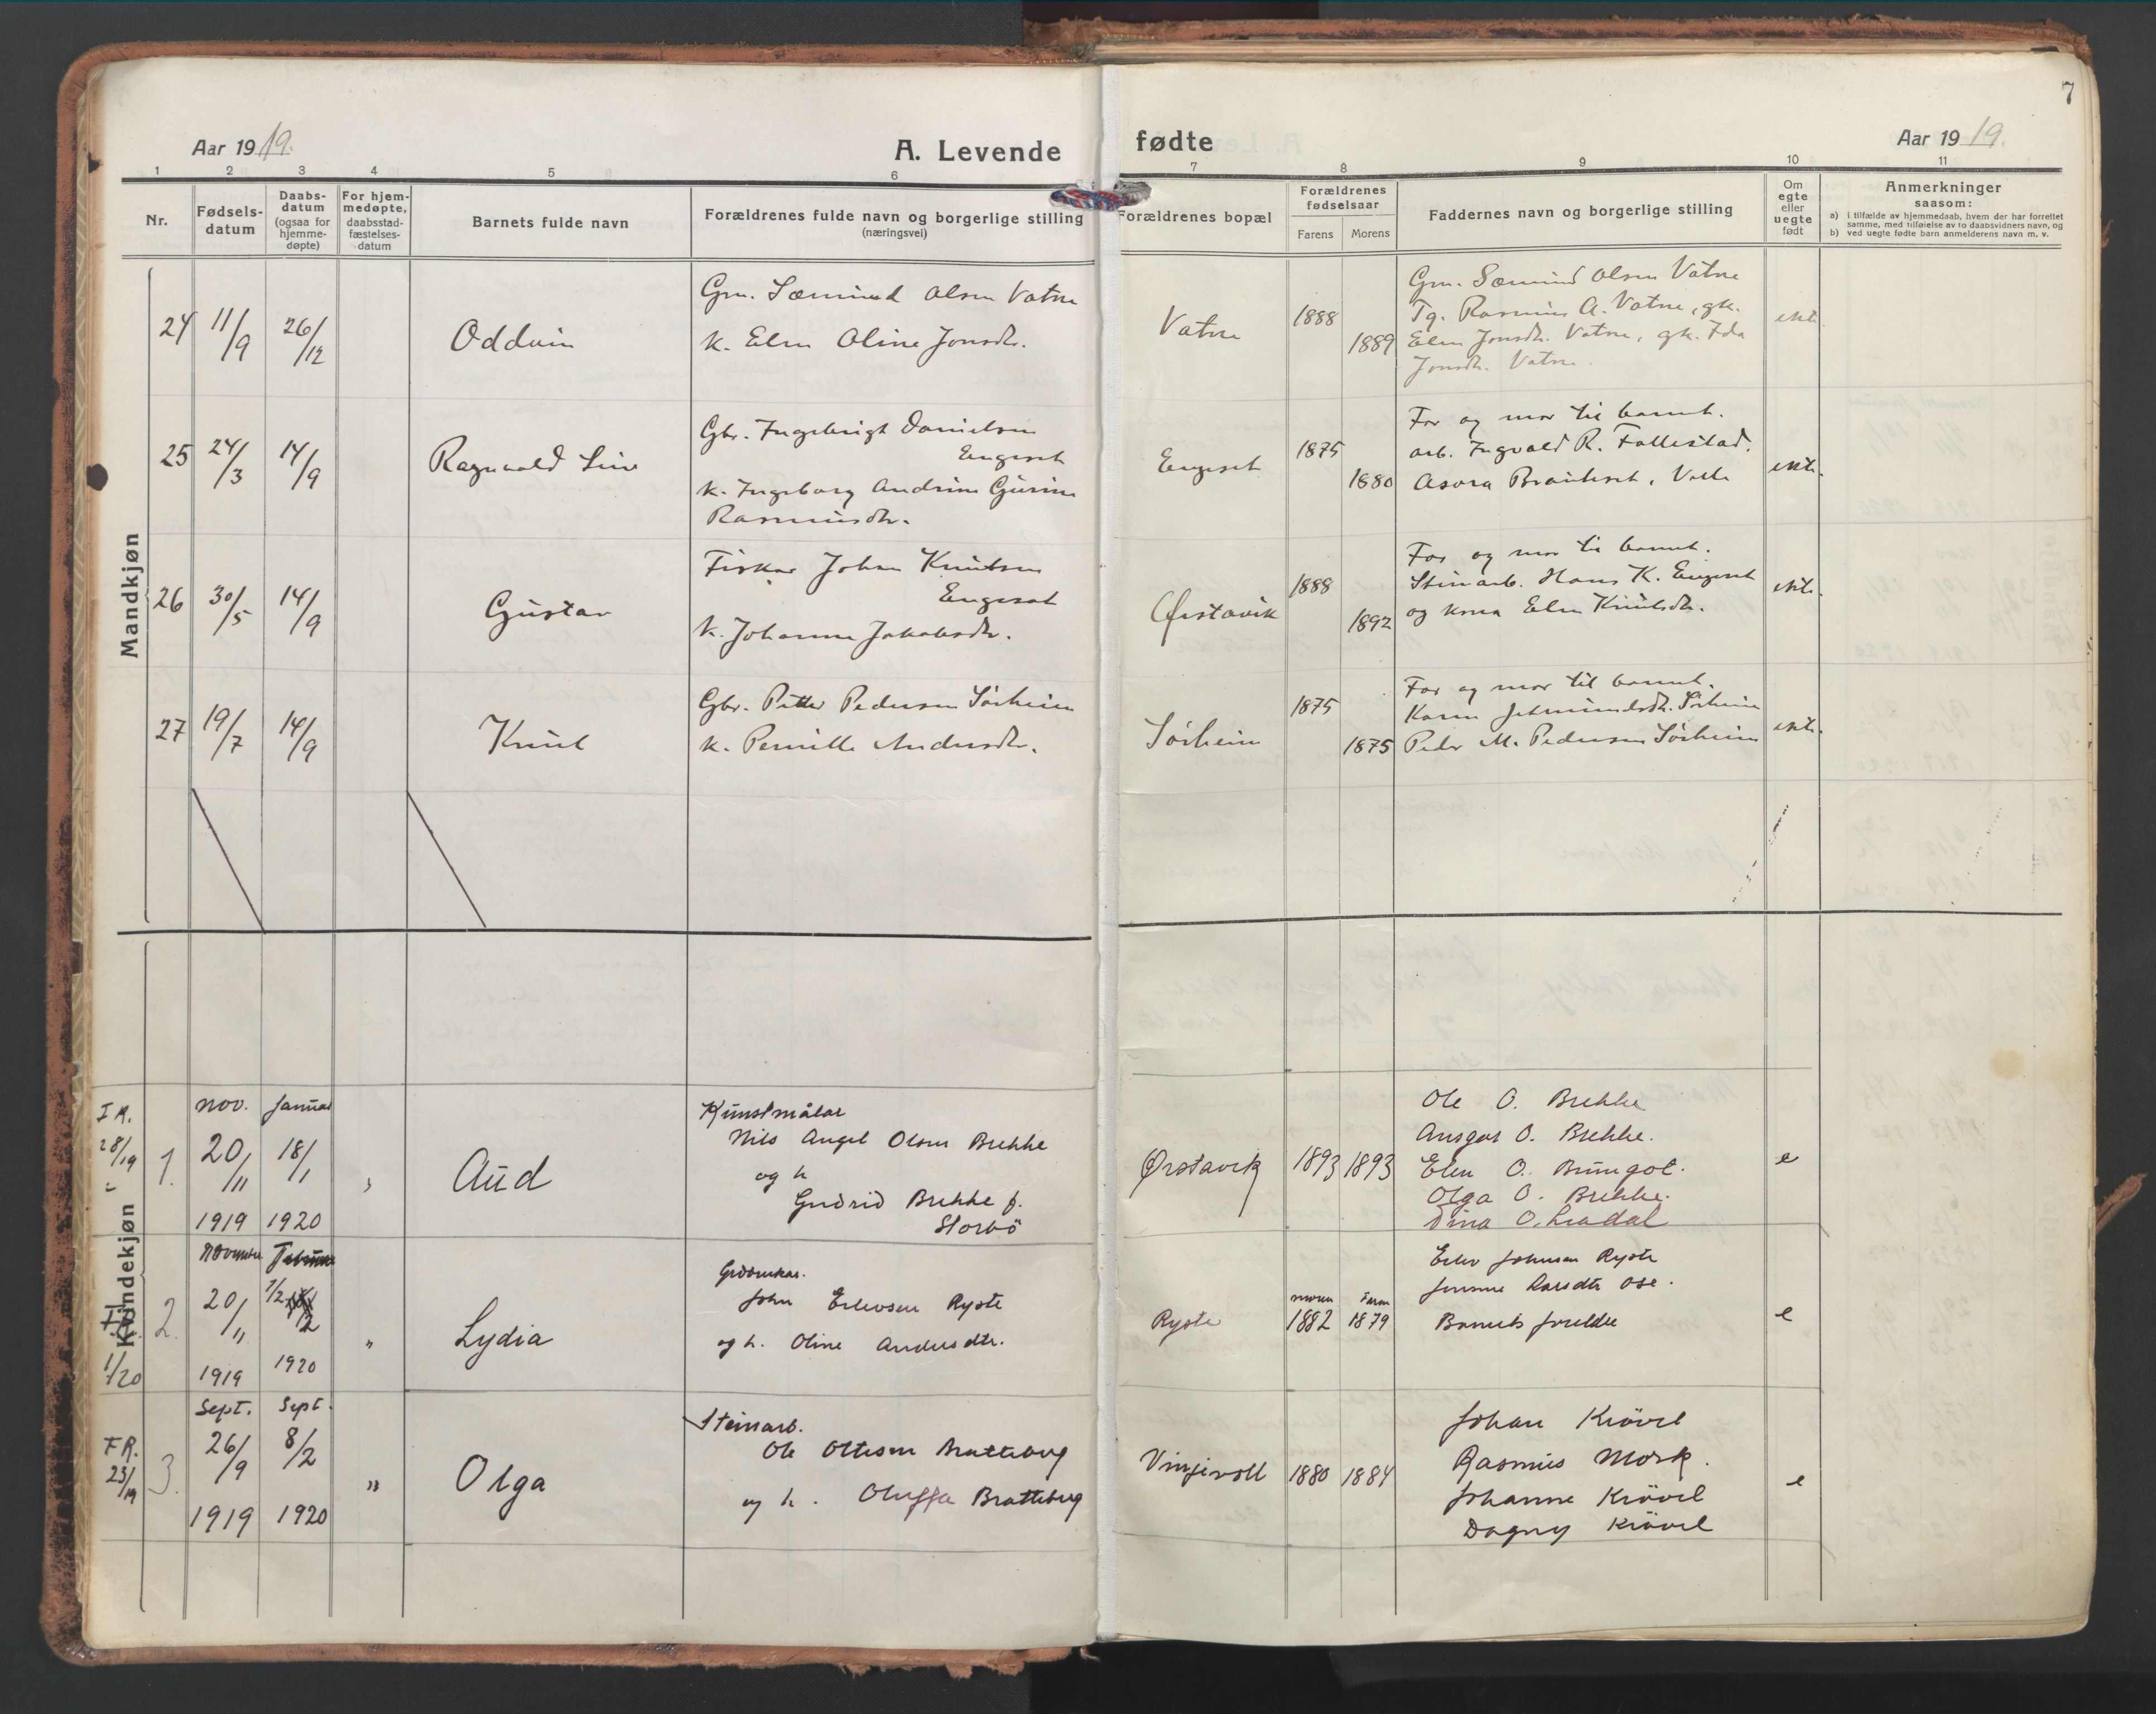 7
Aar 1919.
A. Levende
fødte
Aar 1919.
1 2 3 4 5 6 7 8 9 10 11
Nr.
Fødsels-
datum
Daabs-
datum
(ogsaa for
hjemme-
døpte)
For hjem-
medøpte,
daabsstad-
fæstelses-
datum
Barnets fulde navn
Forældrenes fulde navn og borgerlige stilling
(næringsvei)
Forældrenes bopæl
Forældrenes
fødselsaar
Farens
Morens
Faddernes navn og borgerlige stilling
Om
egte
eller
uegte
født
Anmerkninger
saasom:
a) i tilfælde av hjemmedaab, hvem der har forrettet
samme, med tilføielse av to daabsvidners navn, og
b) ved uegte fødte barn anmelderens navn m. v.
Mandkjøn
24
11/9
26/12
Oddvin
Gm. Sæmund Olsen Vatne
k. Elen Oline Jonsdtr.
Vatne
1888
1889
Gm. Sæmund Olsen Vatne
Tg. Rasmus A. Vatne, gk.
Elen Jonsdtr. Vatne, gk. Ida
Jonsdtr. Vatne.
ekte
25
24/3
14/9
Ragnvald
Gbr. Ingebrigt Danielsen
Engeset
k. Ingeborg Andrine Gurine
Rasmusdtr.
Engeset
1875
1880
Far og mor til barnet.
arb. Ingvald R. Follestad.
Asora Brauteset, Volle
ekte.
26
30/5
14/9
Gustav
Fiskar Johan Knutsen
Engeset
k. Johanne Jakobsdtr.
Ørstavik
1888
1892
Far og mor til barnet.
Steinarb. Hans K. Engeset
og kona Elen Knutsdtr.
ekte.
27
19/7
14/9
Knut
Gbr. Petter Pedersen Sørheim
k. Pernille Andersdtr.
Sørheim
1875
1875
Far og mor til barnet.
Karen Jetmundsdtr. Sørheim
Peder M. Pedersen Sørheim
ekte.
Kvindekjøn
F R.
28/19
1.
nov.
20/11
1919
Januar
18/1
1920
"
Aud
Kunstmålar
Nils Angel Olsen Brekke
og h
Gudrid Brekke f.
Storbö
Ørstavik
1893
1893
Ole O. Brekke
Ansgar O. Brekke.
Elen O. Bungot.
Olga O. Brekke.
Dina O. Liadal
e
1/20
2.
November
20/11
1919
Februar
1/2
1920
"
Lydia
Gardbrukar.
John Erlevsen Ryste
og h. Oline Andersdtr.
Ryste
moren
1882
Faren
1879
Erlev Johnsen Ryste
Jensine Larsdtr Ose.
Barnets foreldre
e
F R.
23/19
3.
Sept.
26/9
1919
Sept.
8/2
1920
"
Olga
Steinarb.
Ole Ottesen Bratteberg
og h. Oluffa Bratteberg
Vinjevoll
1880
1884
Johan Krövel
Rasmus Mork.
Johanne Krövel
Dagny Krövel
e